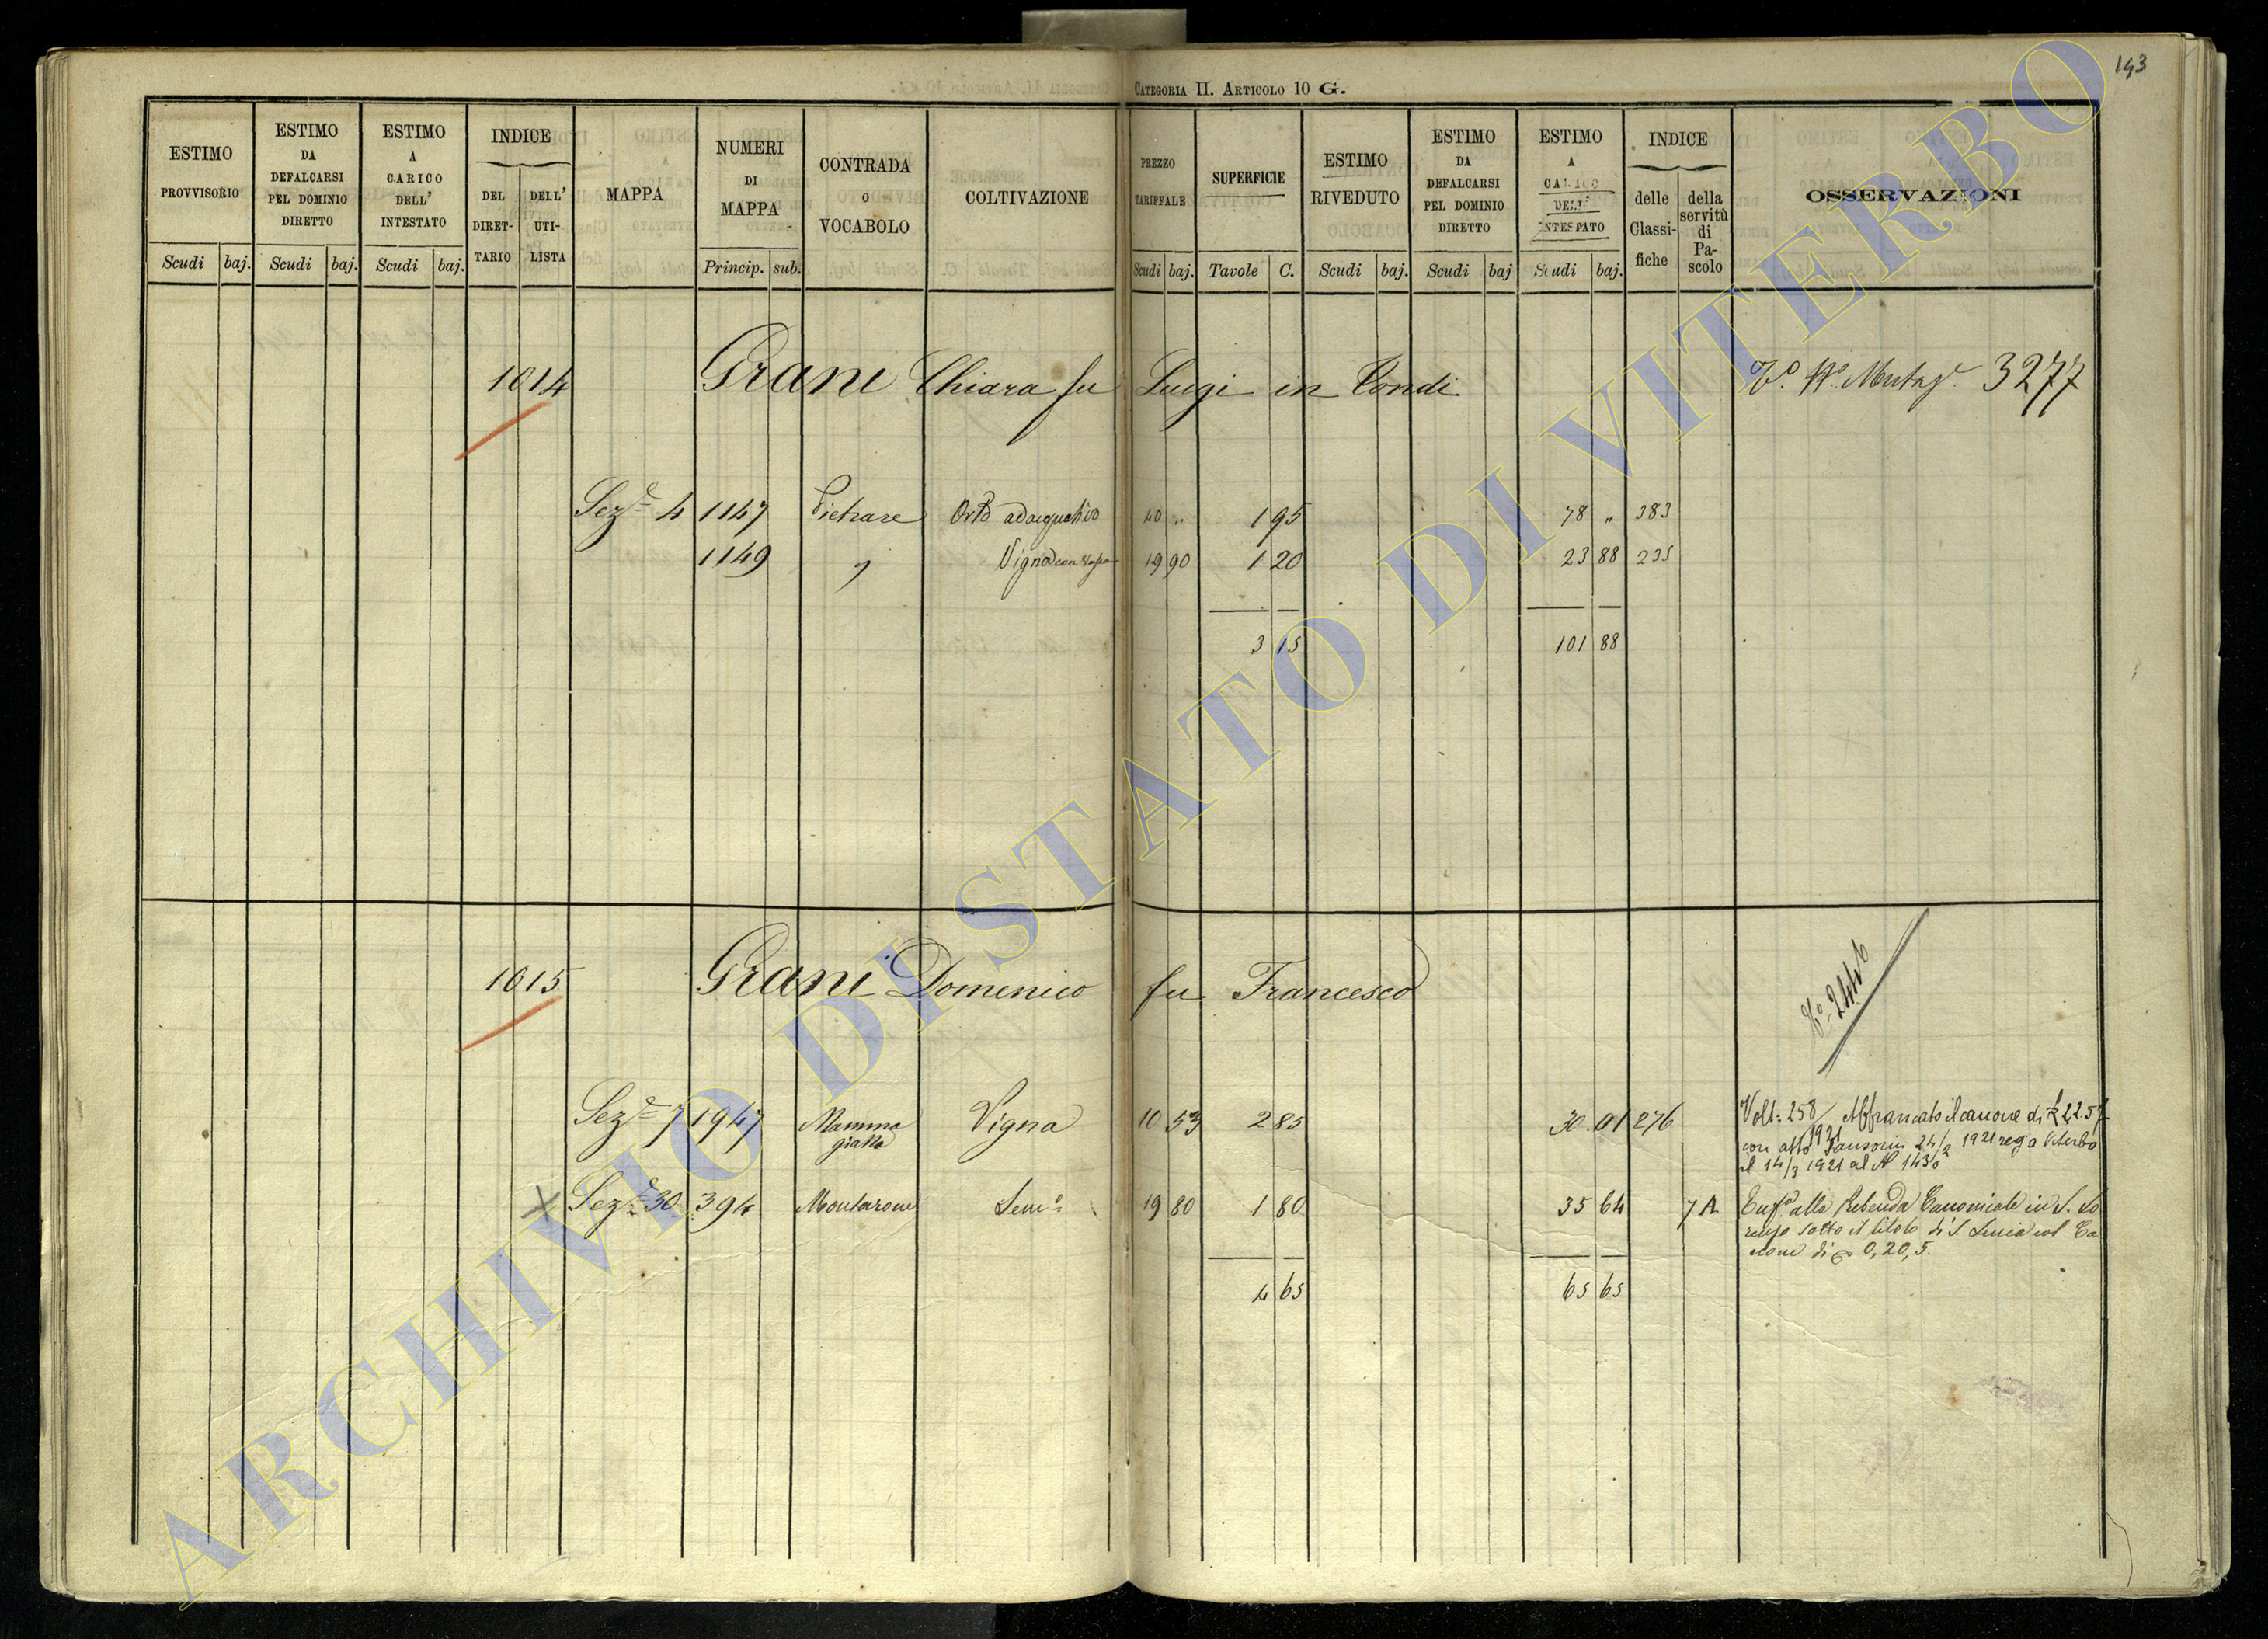 143
CATEGORIA II. ARTICOLO 10 G.
ESTIMO PROVVISORIO
ESTIMO DA DEFALCARSI PEL DOMINIO DIRETTO
ESTIMO A CARICO DELL' INTESTATO
INDICE
DEL DIRET-TARIO
DELL' UTI-LISTA
MAPPA
NUMERI DI MAPPA
CONTRADA O VOCABOLO
COLTIVAZIONE
PREZZO TARIFFALE
SUPERFICIE
ESTIMO RIVEDUTO
ESTIMO DA DEFALCARSI PEL DOMINIO DIRETTO
ESTIMO A CARICO DELL' INTESTATO
INDICE
delle Classi-fiche
della servitù di Pa-scolo
OSSERVAZIONI
Scudi baj. Scudi baj. Scudi baj. Princip. sub. Scudi baj. Tavole C. Scudi baj. Scudi baj Scudi baj.
1014 Grani Chiara fu Luigi in Tondi 3277
Sez.e 4 1147 Pietrare Orto adacquativo 40 „ 1 95 78 „ 383
1149 „ Vigna con 19 90 1 20 23 88 235
3 15 101 88
1015 Grani Domenico fu Francesco
V.o 2446
Sez.e 7 1947 Mamma gialla Vigna 10 53 2 85 30 01 276
Volt. 258/1921 Affrancato il canone di £ 22.5
con atto 24/2 1921 reg. a Viterbo
il 14/3 1921 al N 1430
Sez.e 30 394 Montarone Sem.o 19 80 1 80 35 64 7A
Enf.a alla Prebenda Canonicale in S. Lo
renzo sotto il titolo di S. Lucia col Ca
none di 0,20,5.
4 65 65 65
ARCHIVIO DI STATO DI VITERBO